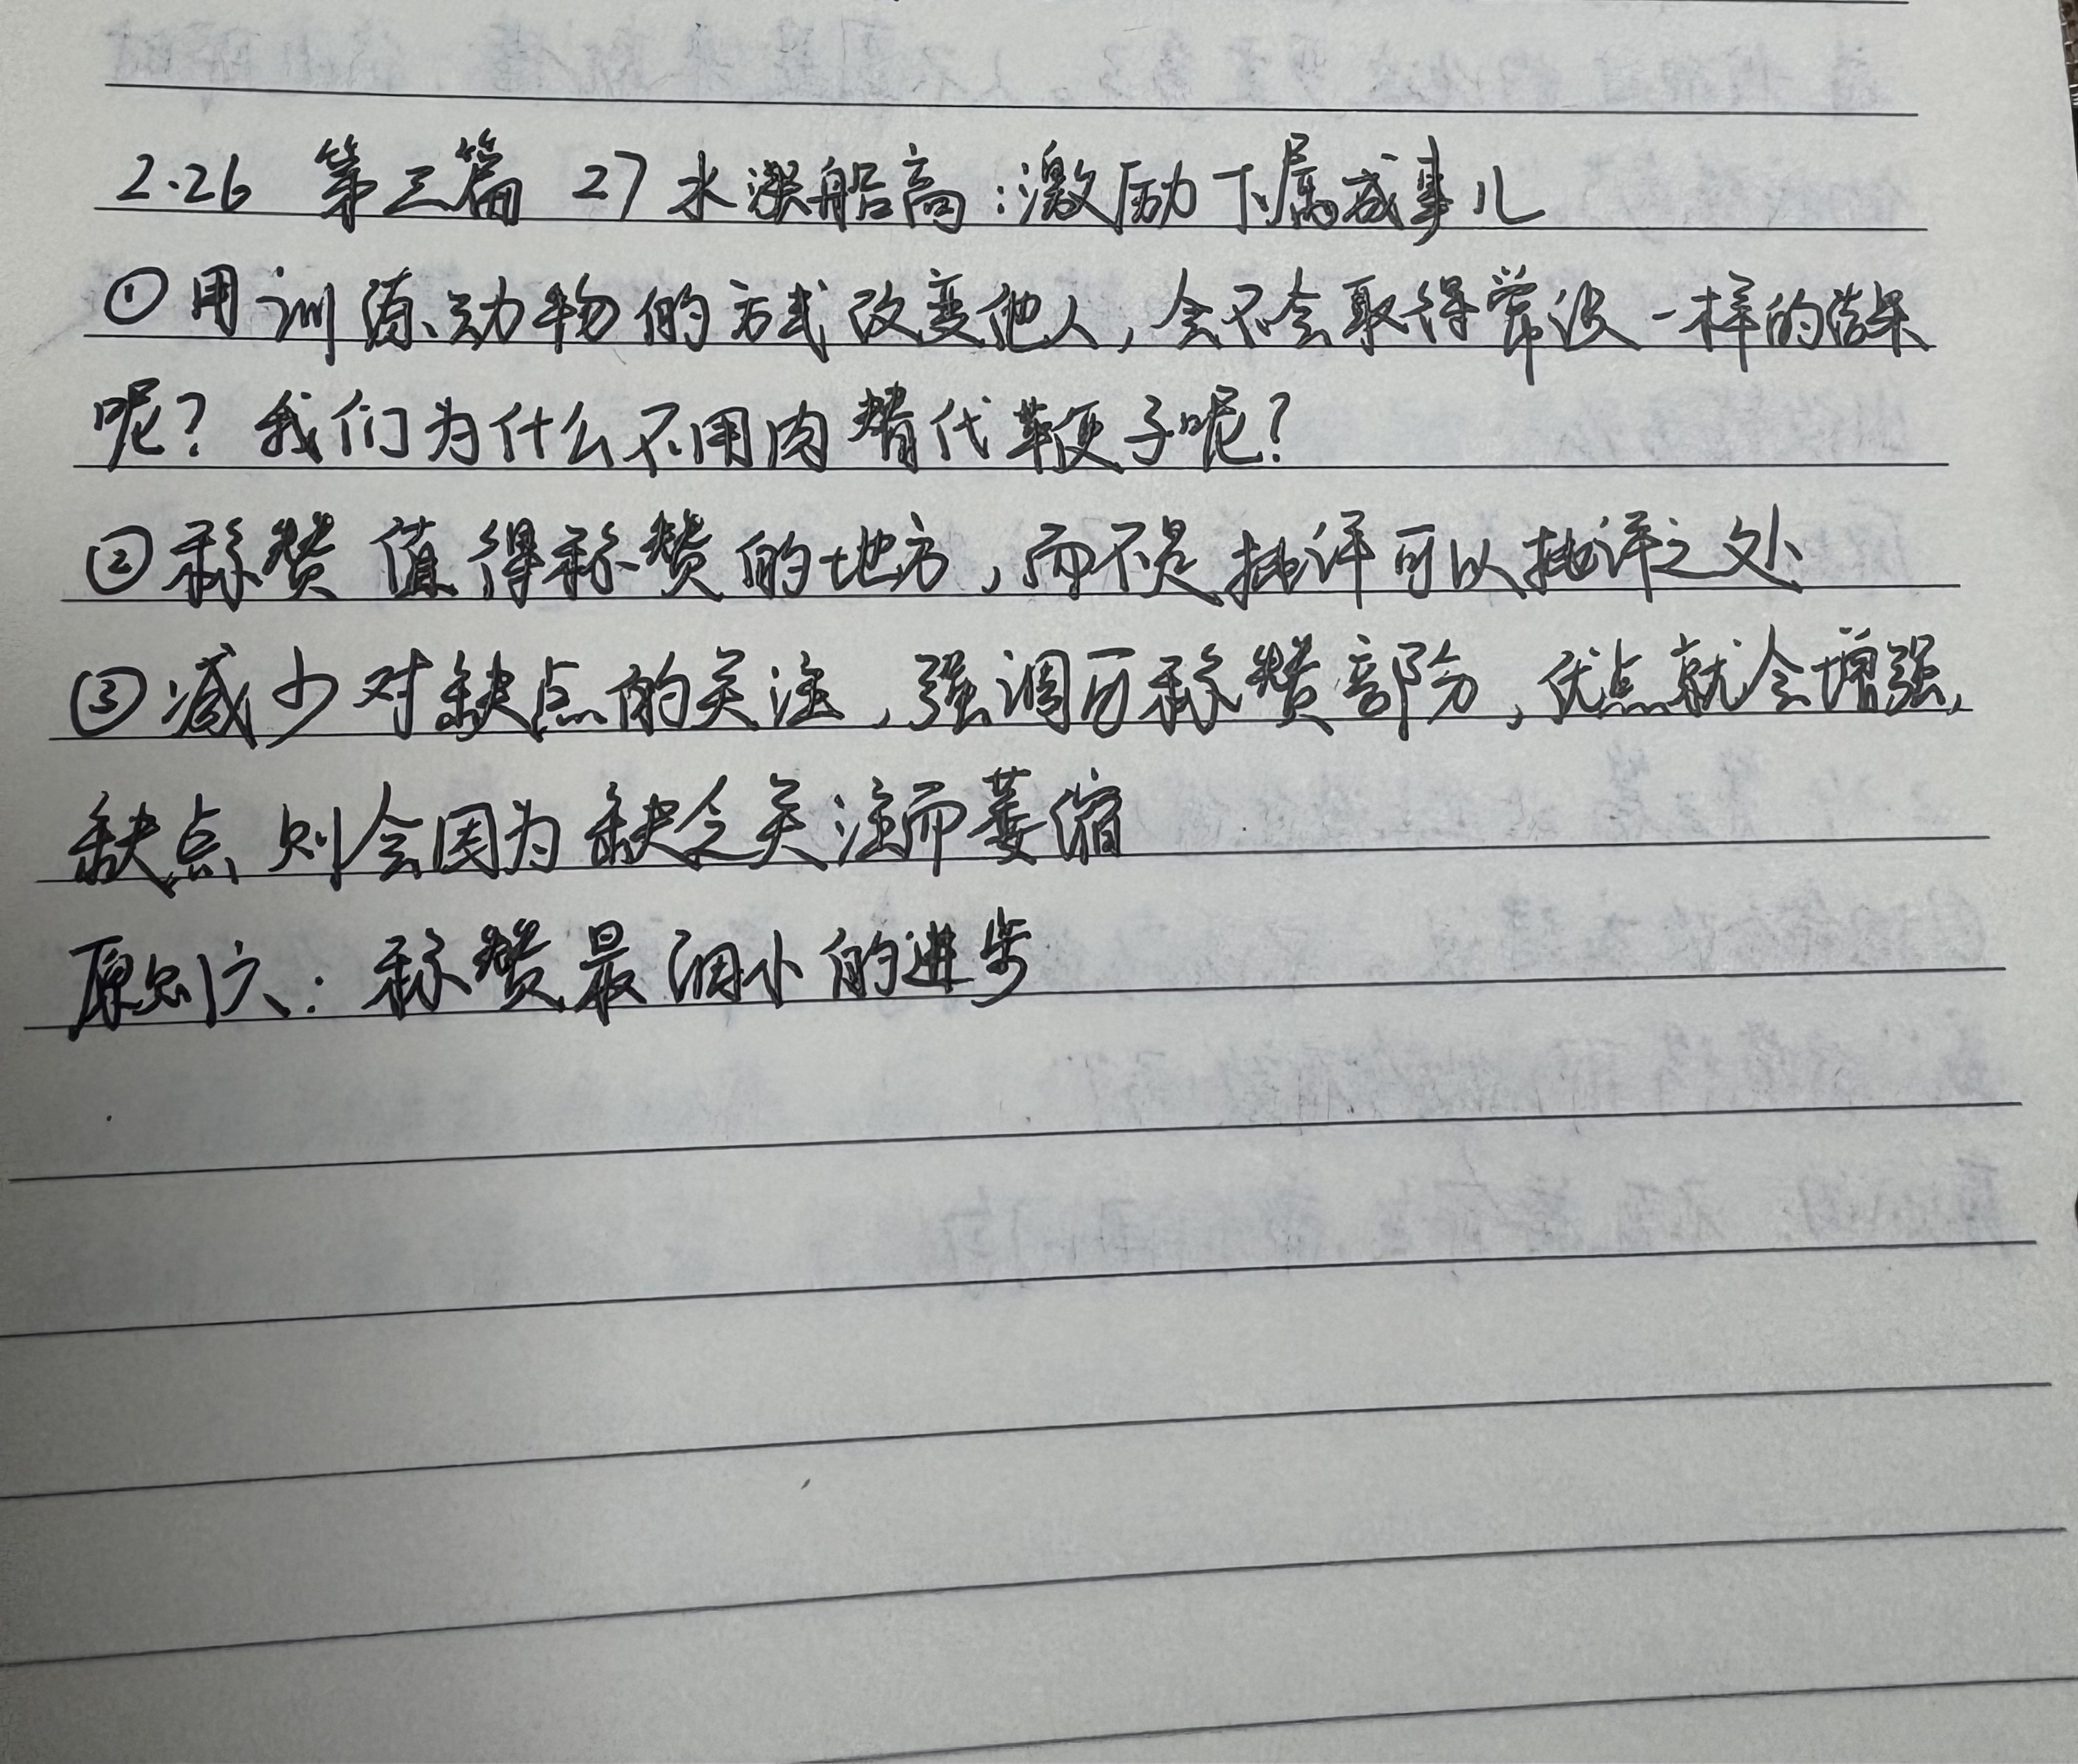 2.26 第三篇 27 水涨船高:激励下属成事儿
①用训练动物的方式改变他人,会不会取得常波一样的结果
呢?我们为什么不用肉替代鞭子呢?
②称赞值得称赞的地方,而不是批评可以批评之处
③减少对缺点的关注,强调可称赞部分,优点就会增强,
缺点则会因为缺乏关注而萎缩
原则六:称赞最细小的进步